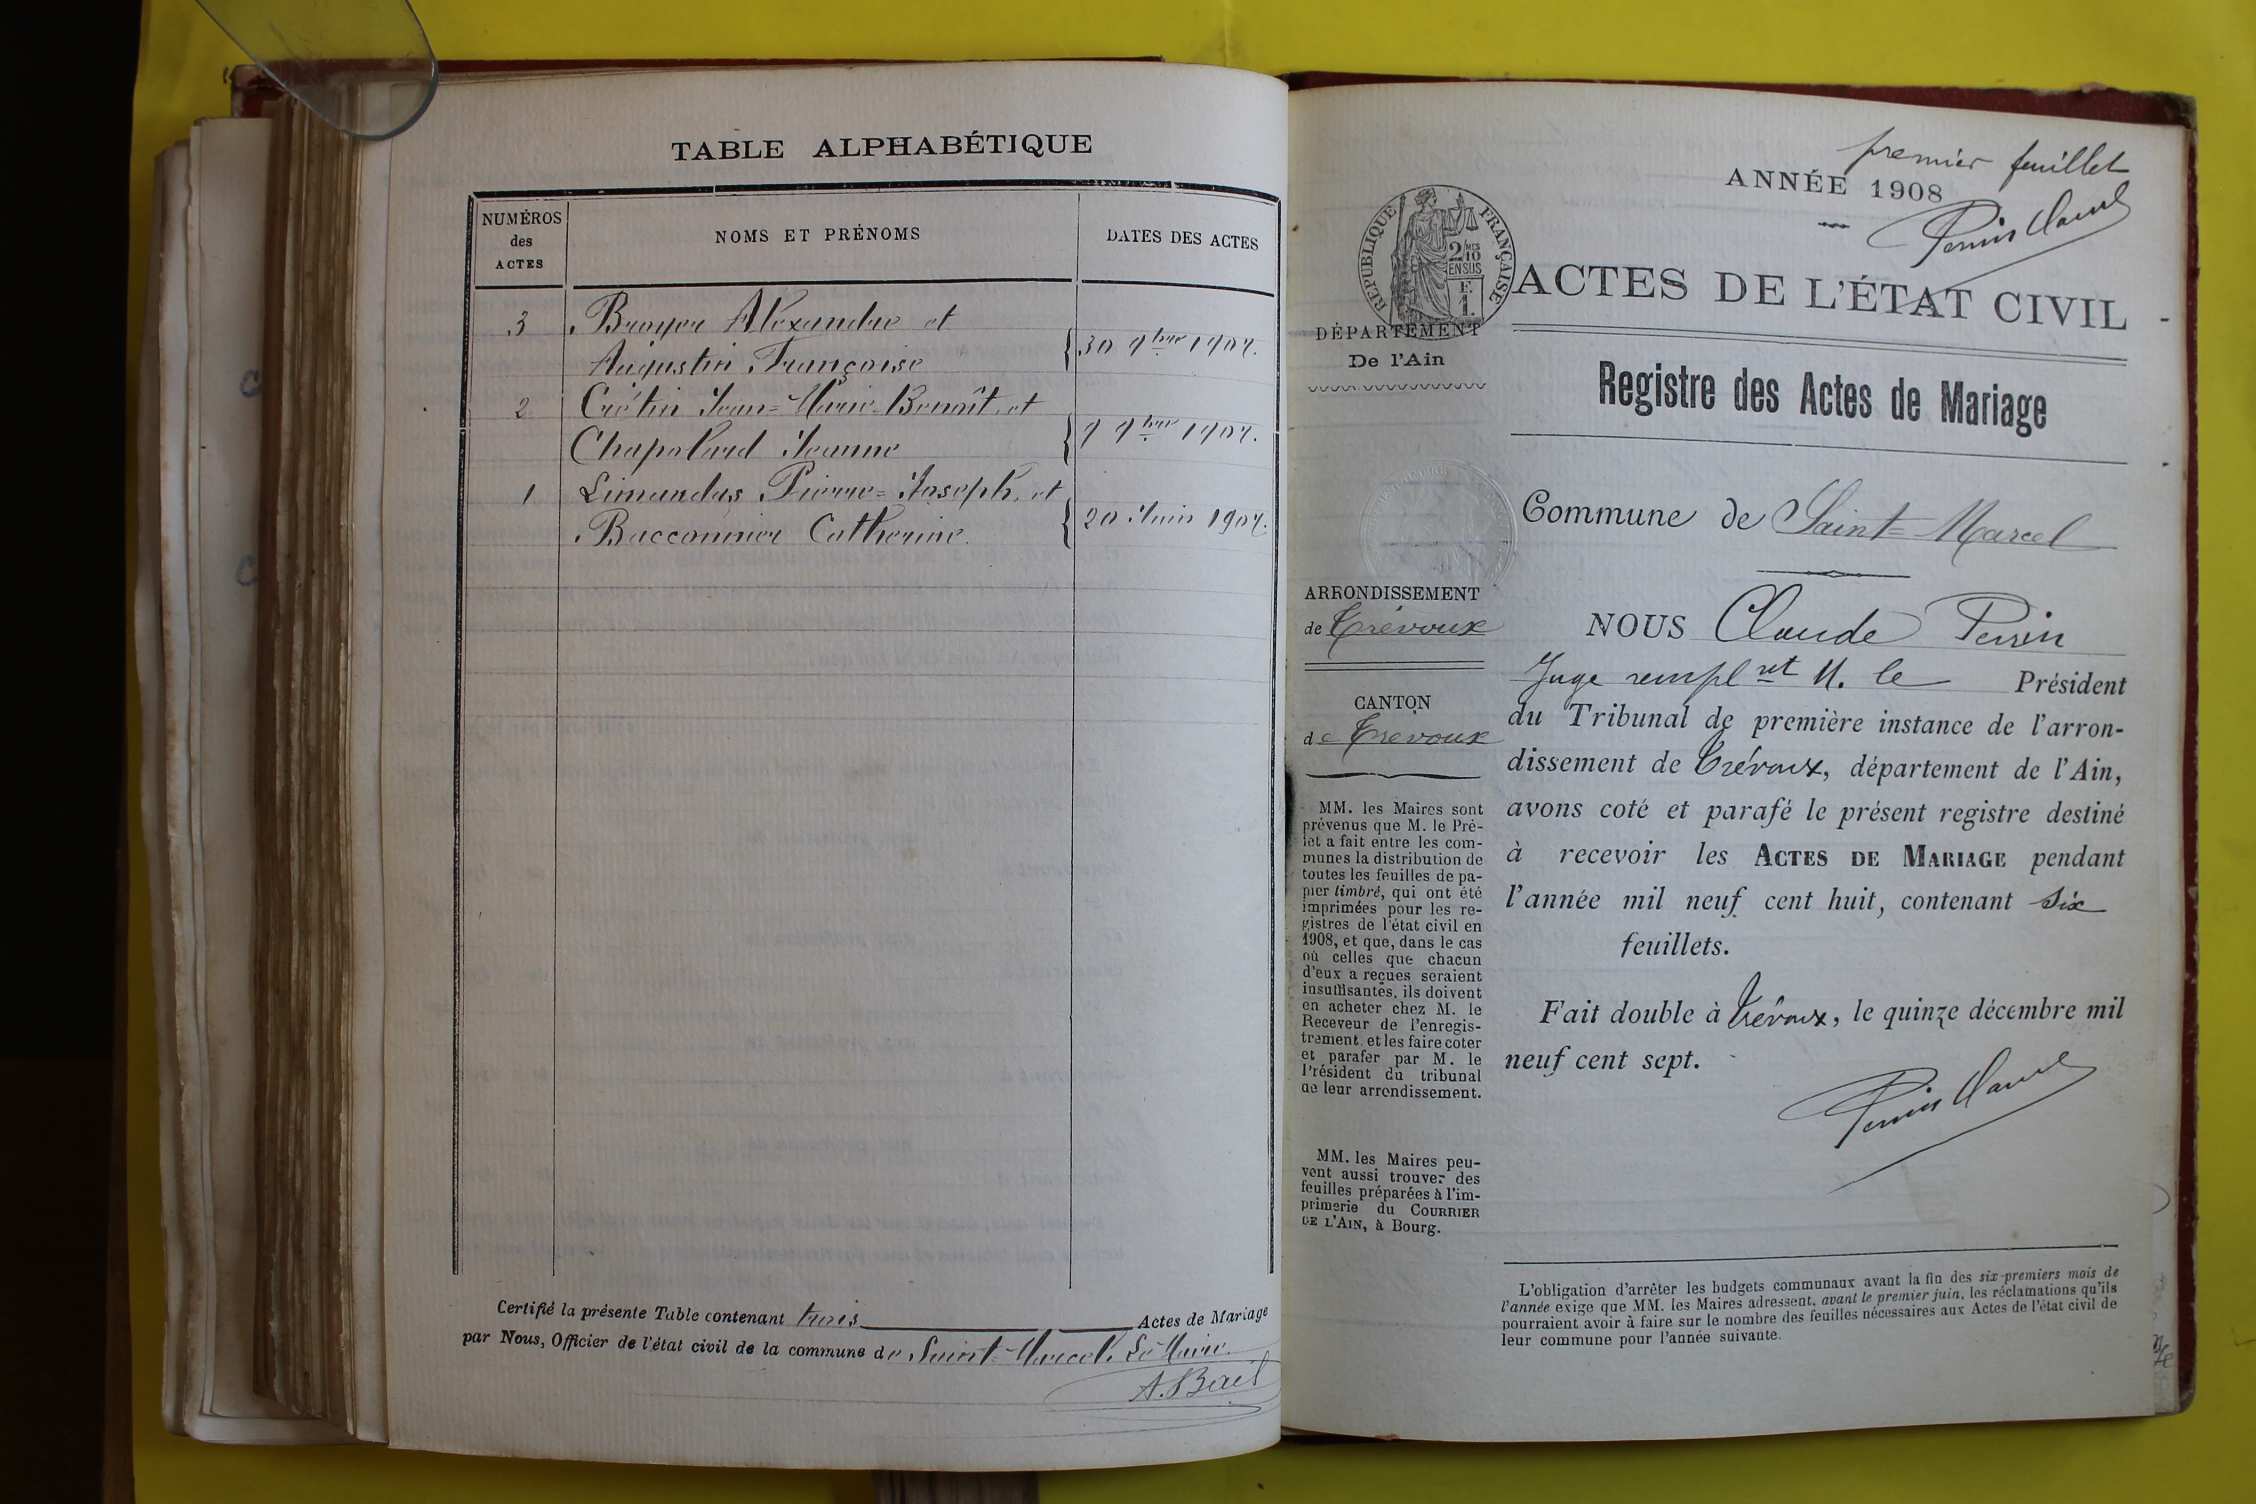 TABLE ALPHABÉTIQUE
NUMÉROS
des
ACTES
NOMS ET PRÉNOMS
DATES DES ACTES
3 Broyer Alexandre et
Augustin Françoise } 30 9bre 1907.
2 Crétin Jean=Marie-Benoît et
Chapolard Jeanne } 7 9bre 1907.
1 Limandas Pierre=Joseph et
Bacconnier Catherine. } 20 Juin 1907.
Certifié la présente Table contenant trois Actes de Mariage
par Nous, Officier de l'état civil de la commune de Saint=Marcel. Le Maire.
A. Bail
premier feuillet
ANNÉE 1908
Perrin Claude
RÉPUBLIQUE FRANÇAISE
2/10 MES
EN SUS
F.
1.
ACTES DE L'ÉTAT CIVIL
DÉPARTEMENT
De l'Ain
Registre des Actes de Mariage
Commune de Saint=Marcel
ARRONDISSEMENT
de Trévoux
CANTON
de Trévoux
MM. les Maires sont
prévenus que M. le Pré-
fet a fait entre les com-
munes la distribution de
toutes les feuilles de pa-
pier timbré, qui ont été
imprimées pour les re-
gistres de l'état civil en
1908, et que, dans le cas
où celles que chacun
d'eux a reçues seraient
insuffisantes, ils doivent
en acheter chez M. le
Receveur de l'enregis-
trement, et les faire coter
et parafer par M. le
Président du tribunal
de leur arrondissement.
MM. les Maires peu-
vent aussi trouver des
feuilles préparées à l'im-
primerie du COURRIER
DE L'AIN, à Bourg.
NOUS Claude Perrin
Juge remplnt M. le Président
du Tribunal de première instance de l'arron-
dissement de Trévoux, département de l'Ain,
avons coté et parafé le présent registre destiné
à recevoir les ACTES DE MARIAGE pendant
l'année mil neuf cent huit, contenant six
feuillets.
Fait double à Trévoux, le quinze décembre mil
neuf cent sept.
Perrin Claude
L'obligation d'arrêter les budgets communaux avant la fin des six premiers mois de
l'année exige que MM. les Maires adressent, avant le premier juin, les réclamations qu'ils
pourraient avoir à faire sur le nombre des feuilles nécessaires aux Actes de l'état civil de
leur commune pour l'année suivante.